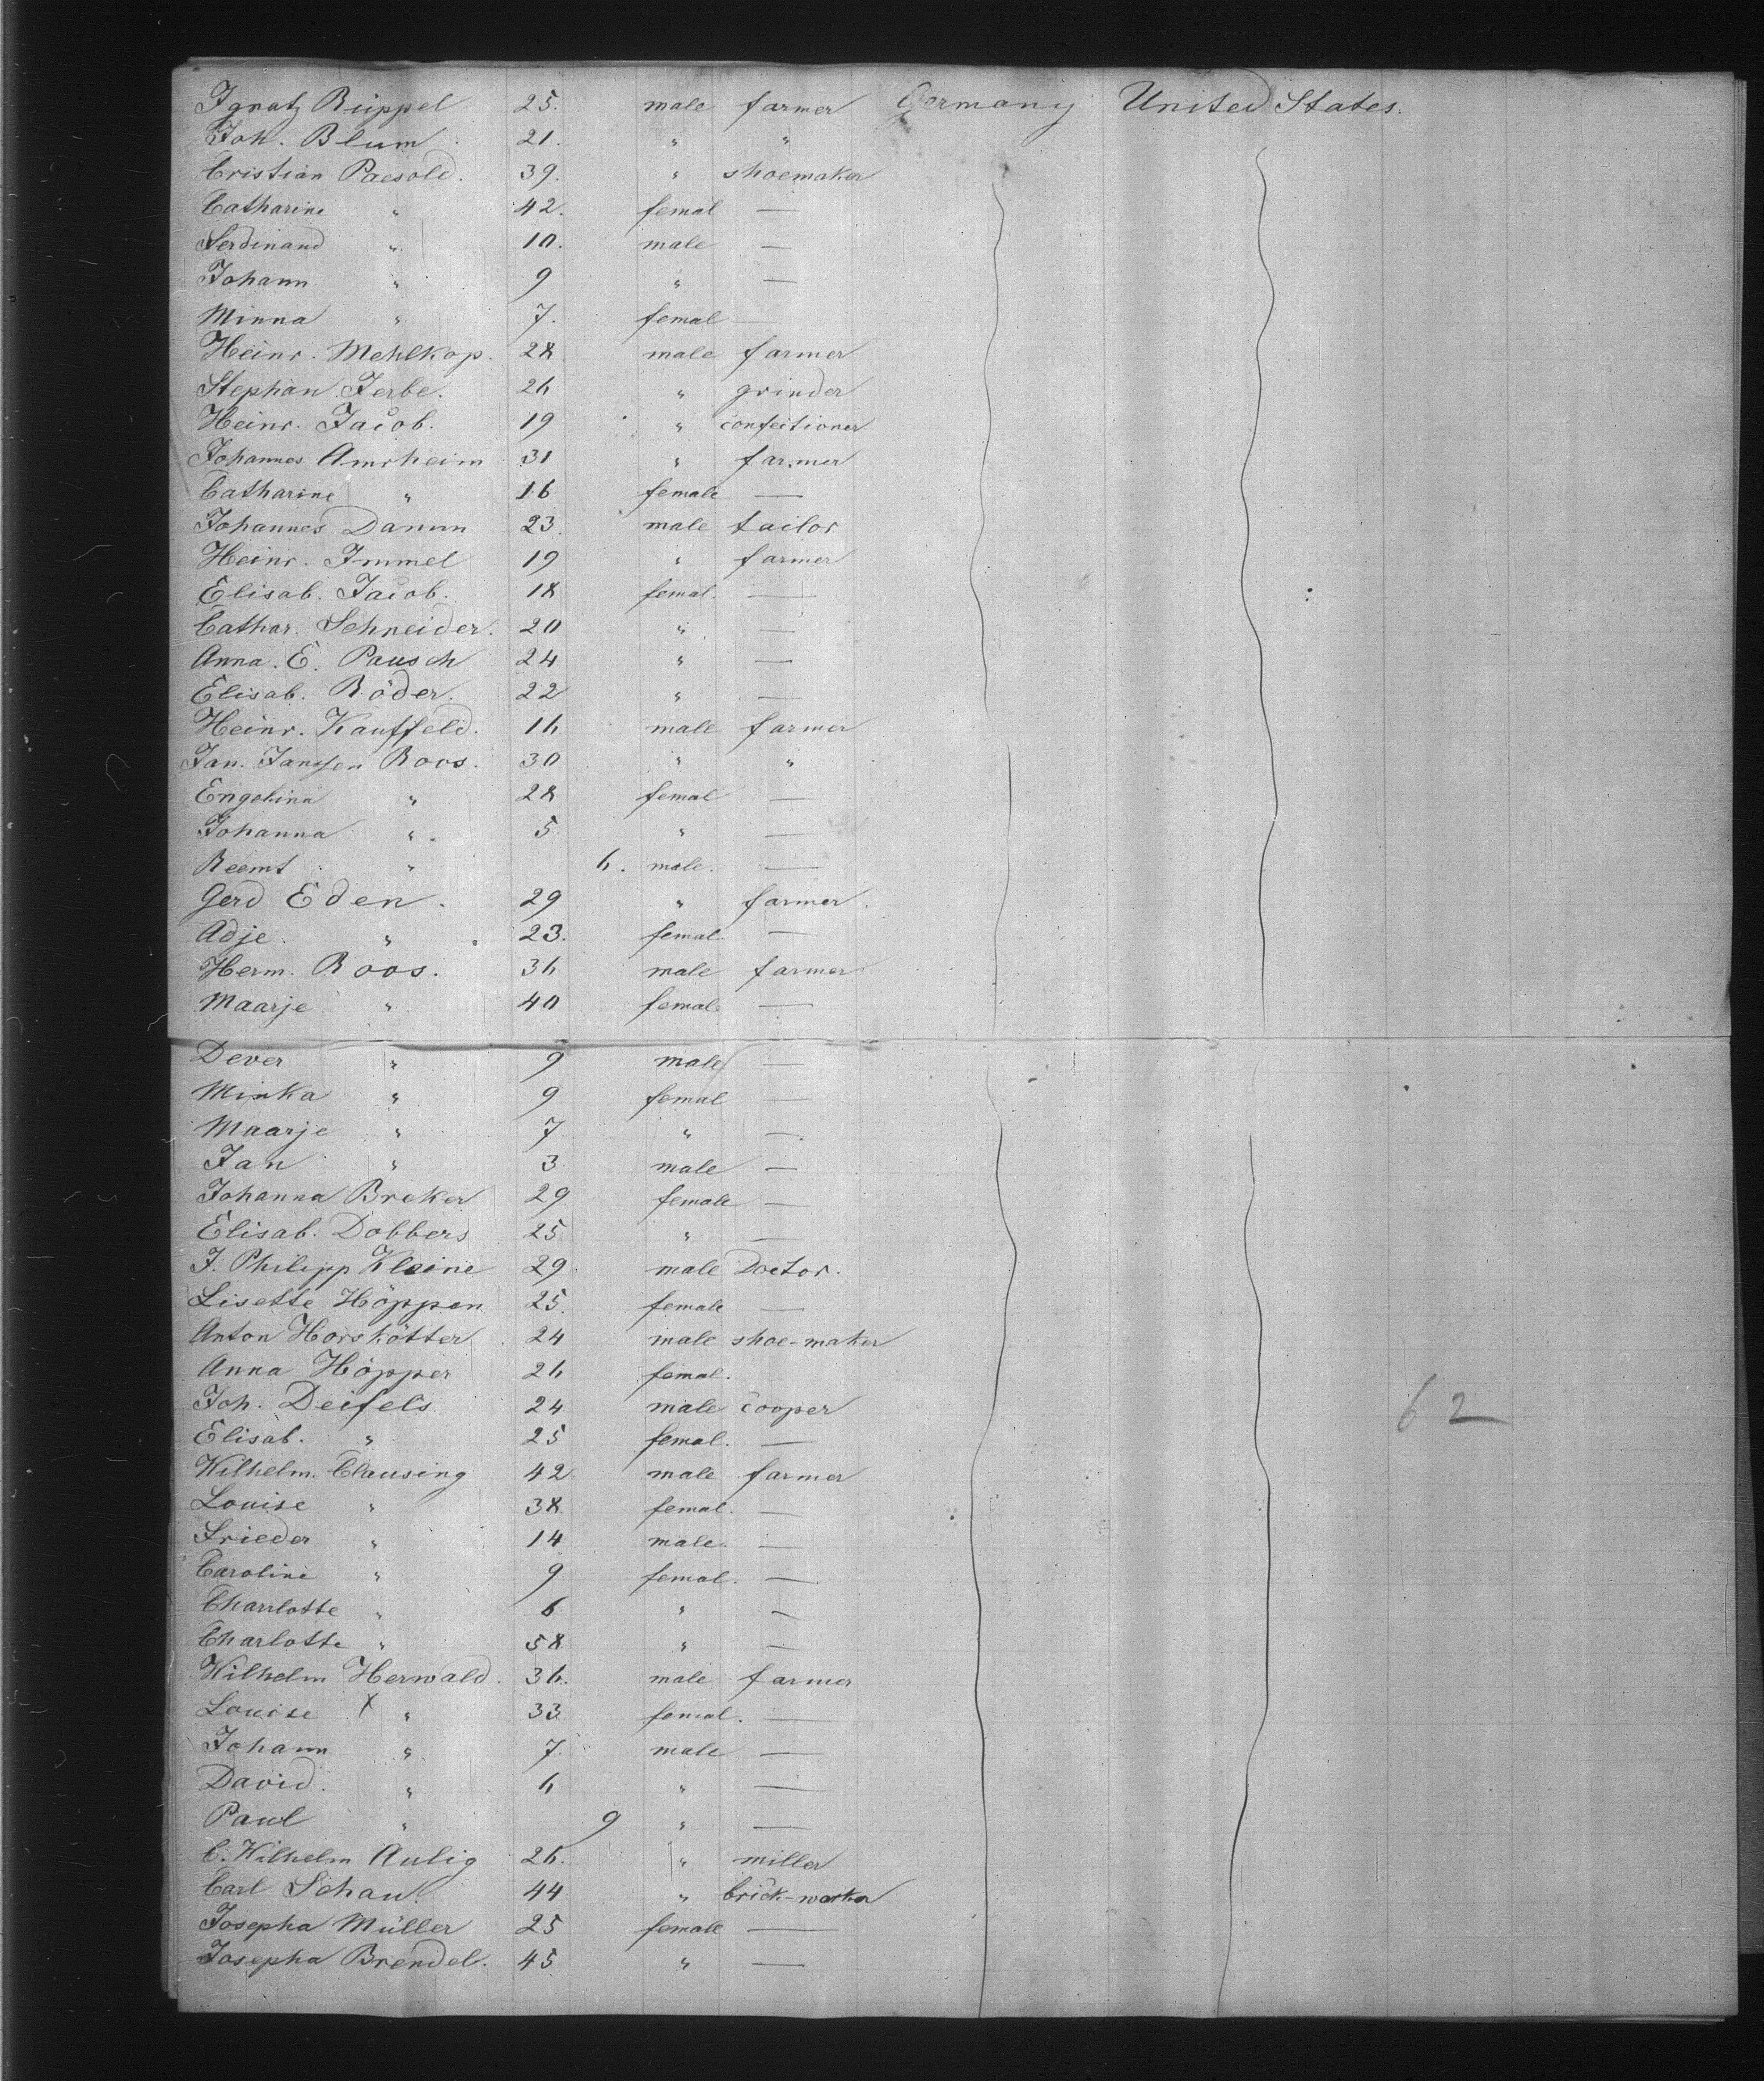 Ignatz Rüppel 25. male farmer Germany United States.
Joh. Blum 21. " "
Cristian Paesold. 39. " shoemaker
Catharine " 42. femal —
Ferdinand " 10. male —
Johann " 9 " —
Minna " 7. femal —
Heinr. Mehlkop. 28 male farmer
Stephan Ferbe. 26 " grinder
Heinr. Jacob. 19 " confectioner
Johannes Amrheim 31 " farmer
Catharine " 16 female —
Johannes Damm 23 male tailor
Heinr. Immel 19 " farmer
Elisab. Jacob. 18 femal. —
Cathar. Schneider. 20 " —
Anna. E. Pausch 24 " —
Elisab. Röder. 22 " —
Heinr. Kauffeld. 16 male farmer
Jan. Janssen Roos. 30 " "
Engelina " 28 femal —
Johanna " 5 " —
Reemt " 6. male. —
Gerd Eden. 29 " farmer.
Adje. " 23. femal. —
Herm. Roos. 36 male farmer
Maarje " 40 female —
Dever " 9 male —
Minka " 9 femal —
Maarje " 7 " —
Jan " 3 male —
Johanna Breker 29 female —
Elisab. Dobbers 25 " —
J. Philipp Kleine 29 male Doctor.
Lisette Höppen 25. female —
Anton Horskötter 24 male shoe-maker
Anna Höpper 26 femal.
Joh. Deifels 24 male cooper
62
Elisab. " 25 femal. —
Wilhelm. Clausing 42 male farmer
Louise " 38 femal. —
Frieder " 14 male. —
Caroline " 9 femal. —
Charrlotte " 6 " —
Charlotte " 58 " —
Wilhelm Herwald. 36. male farmer
Louise X " 33 femal. —
Johann " 7 male —
David. " 6 " —
Paul " 9 " —
C. Wilhelm Aulig 26. " miller
Carl Schau. 44 " brick-worker
Josepha Müller 25 female —
Josepha Brendel. 45 " —